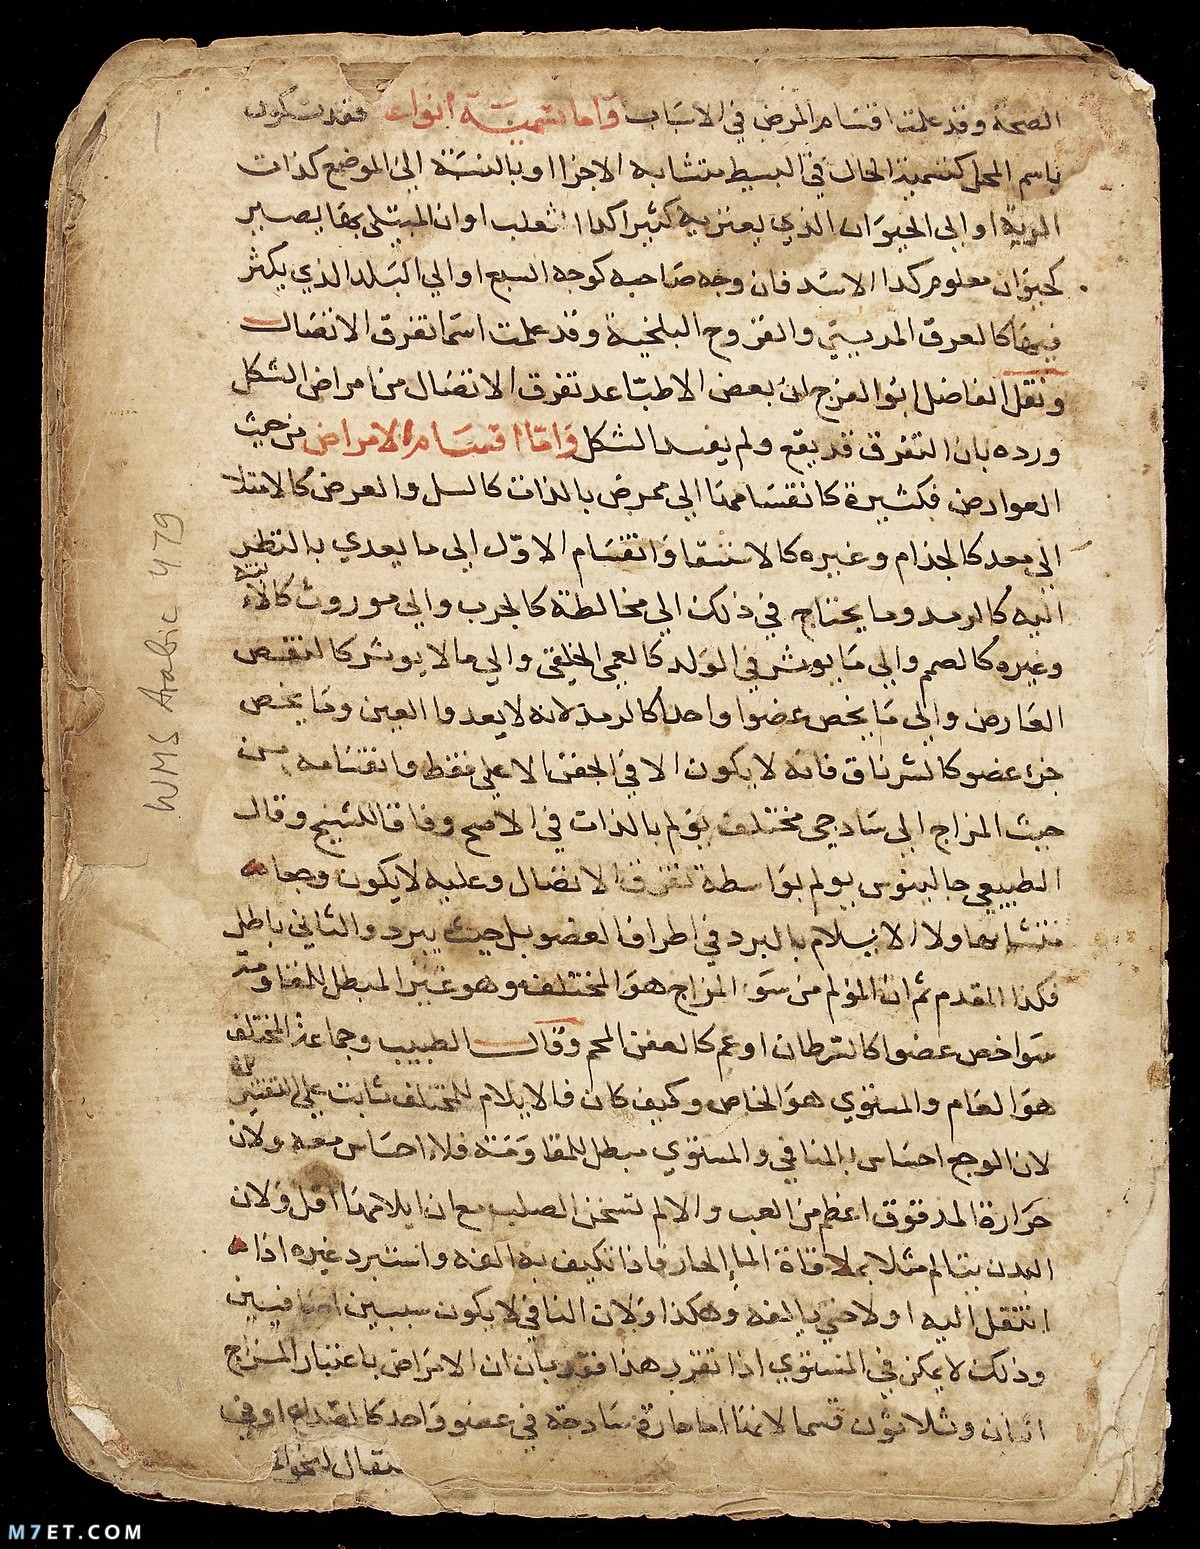 الصحة وقد علمت اقسام المرض في الاسباب واما تسمية انواع فقد تكون
باسم المحل كتسمية الحال في البسيط متشابه الاجزا او بالنسبة الى الموضع كذات
الرية او الى الحيوان الذي يعتريه كثيرا كداا الثعلب او ان المبتلى بها يصير
كحيوان معلوم كدا الاسد فان وجه صاحبه كوجه السبع او الي البلد الذي يكثر
فيها كالعرق المديني والقروح البلخية وقد علمت اسما تفرق الاتصال
ونقل الفاضل ابو الفرج ان بعض الاطبا عد تفرق الاتصال من امراض الشكل
ورده بان التفرق قد يقع ولم يفسد الشكل واما اقسام الامراض من حيث
العوارض فكثيرة كانقسامها الي ممرض بالذات كالسل والعرض كالامتلا
الي معد كالجذام وغيره كالاستسقا وانقسام الاول الي ما يعدي بالنظر
اليه كالرمد وما يحتاج في ذلك الي مخالطة كالجرب والي موروث كالابنة
وغيره كالصمم والي ما يوثر في الولد كالعمي الخلقي والي ما لا يوثر كالنقص
العارض والي ما يخص عضوا واحدا كالرمد لانه لا يعدوا العين وما يخص
جزء عضو كالشرناق فانه لا يكون الا في الجفن الاعلي فقط وانقسامه من
حيث المزاج الي سادجي مختلف يولم بالذات في الاصح وفاقا للشيخ وقال
الطبيعي جالينوس يولم بواسطة تفرق الاتصال وعليه لا يكون وجعا
متشابها ولا الايلام بالبرد في اطراف العضو بل حيث يبرد والثاني باطل
فكذا المقدم ثم ان المولم من سو المزاج هو المختلف وهو غير المبطل للمقاومة
سوا خص عضوا كالسرطان او عم كالعفن المحم وقال الطبيب وجماعة المختلف
هو العام والمستوي هو الخاص وكيف كان فالايلام للمختلف ثابت علي التفسيرين
لان الوجع احساس بالمنافي والمستوي مبطل للمقاومة فلا احساس معه ولان
حرارة المدقوق اعظم من الغب والا لم تسخن الصلب مع ان ايلامها اقل ولان
البدن يتالم مثلا بملاقاة الما الحار فاذا تكيف به الفه واستبرد غيره اذا
انتقل اليه اولا حتي يالفه وهكذا ولان النافي لا يكون سببين اضافيين
وذلك لا يمكن في المستوي اذا تقرر هذا فقد بان ان الامراض باعتبار المزاج
اثنان وثلاثون قسما لانها اما حارة سادجة في عضو واحد كالصداع او في
WMS Arabic 479
M7ET.COM